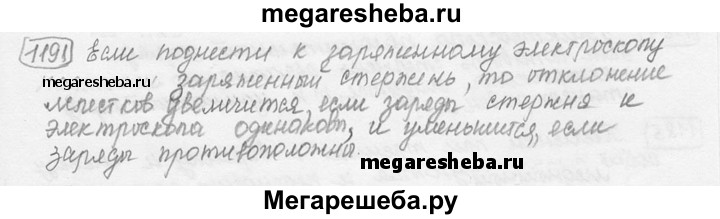 megaresheba.ru
1191 Если поднести к заряженному электроскопу
megaresheba.ru заряженный стержень, то отклонение
лепестков увеличится, если заряды стержня и
электроскопа одинаковы, и уменьшится, если
заряды противоположны.
megaresheba.ru
Мегарешеба.ру